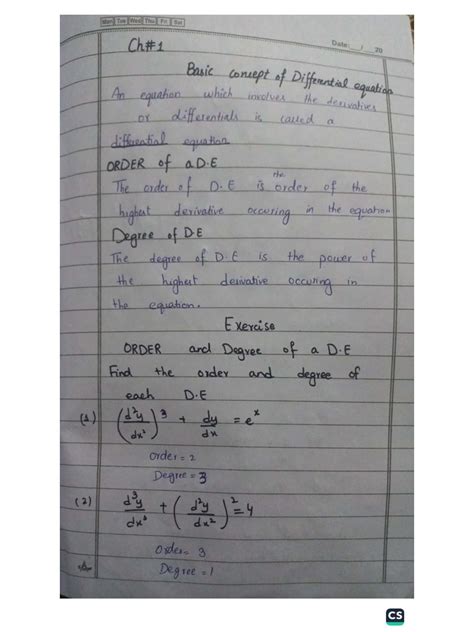 Mon Tue Wed Thu Fri Sat
Date: __/__20
Ch#1
Basic concept of Differential equation
An equation which involves the derivatives
or differentials is called a
differential equation
ORDER of a D.E
The order of D.E is the order of the
highest derivative occuring in the equation
Degree of D.E
The degree of D.E is the power of
the highest derivative occuring in
the equation.
Exercise
ORDER and Degree of a D.E
Find the order and degree of
each D.E
(1) (d²y/dx²)³ + dy/dx = eˣ
Order = 2
Degree = 3
(2) d³y/dx³ + (d²y/dx²)² = 4
Order = 3
Degree = 1
CS